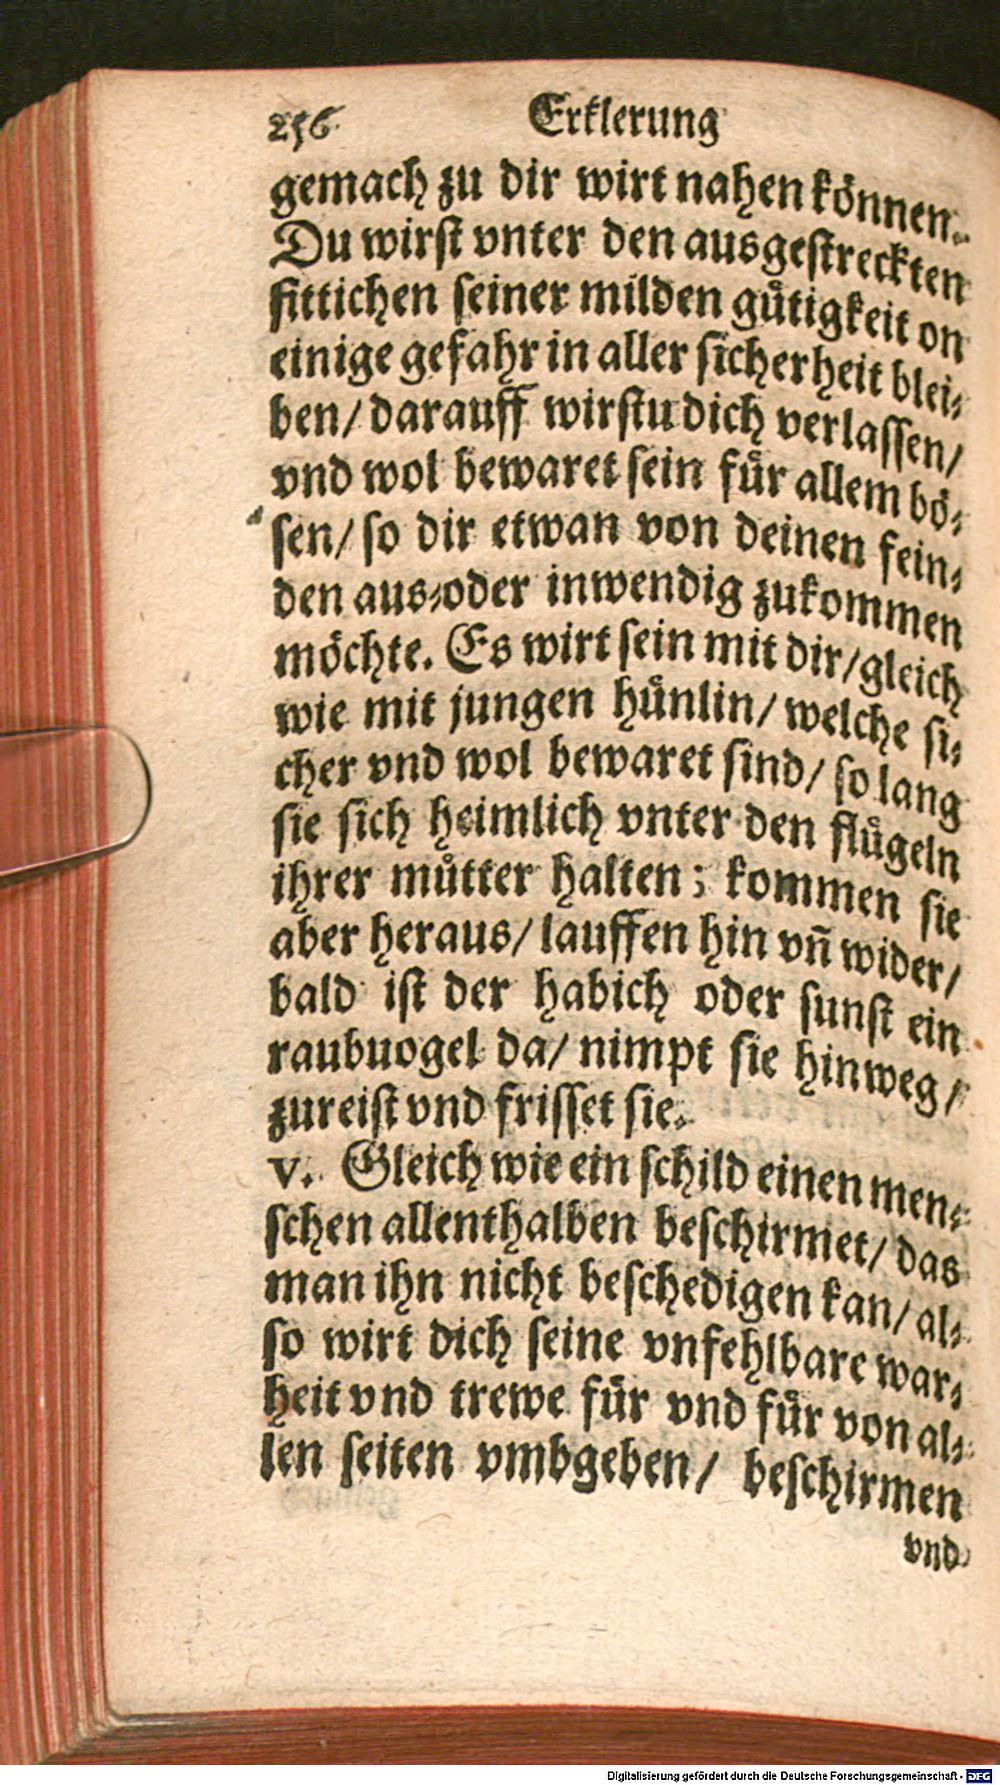 256 Erklerung
gemach zu dir wirt nahen können.
Du wirst vnter den ausgestreckten
fittichen seiner milden gütigkeit on
einige gefahr in aller sicherheit blei⸗
ben/ darauff wirstu dich verlassen/
vnd wol bewaret sein für allem bö⸗
sen/ so dir etwan von deinen fein⸗
den aus⸗oder inwendig zukommen
möchte. Es wirt sein mit dir/ gleich
wie mit jungen hünlin/ welche si⸗
cher vnd wol bewaret sind/ so lang
sie sich heimlich vnter den flügeln
ihrer můtter halten; kommen sie
aber heraus/ lauffen hin vñ wider/
bald ist der habich oder sunst ein
raubuogel da/ nimpt sie hinweg/
zureist vnd frisset sie.
v. Gleich wie ein schild einen men⸗
schen allenthalben beschirmet/ das
man ihn nicht beschedigen kan/ al⸗
so wirt dich seine vnfehlbare war⸗
heit vnd trewe für vnd für von al⸗
len seiten vmbgeben/ beschirmen
vnd
Digitalisierung gefördert durch die Deutsche Forschungsgemeinschaft - DFG